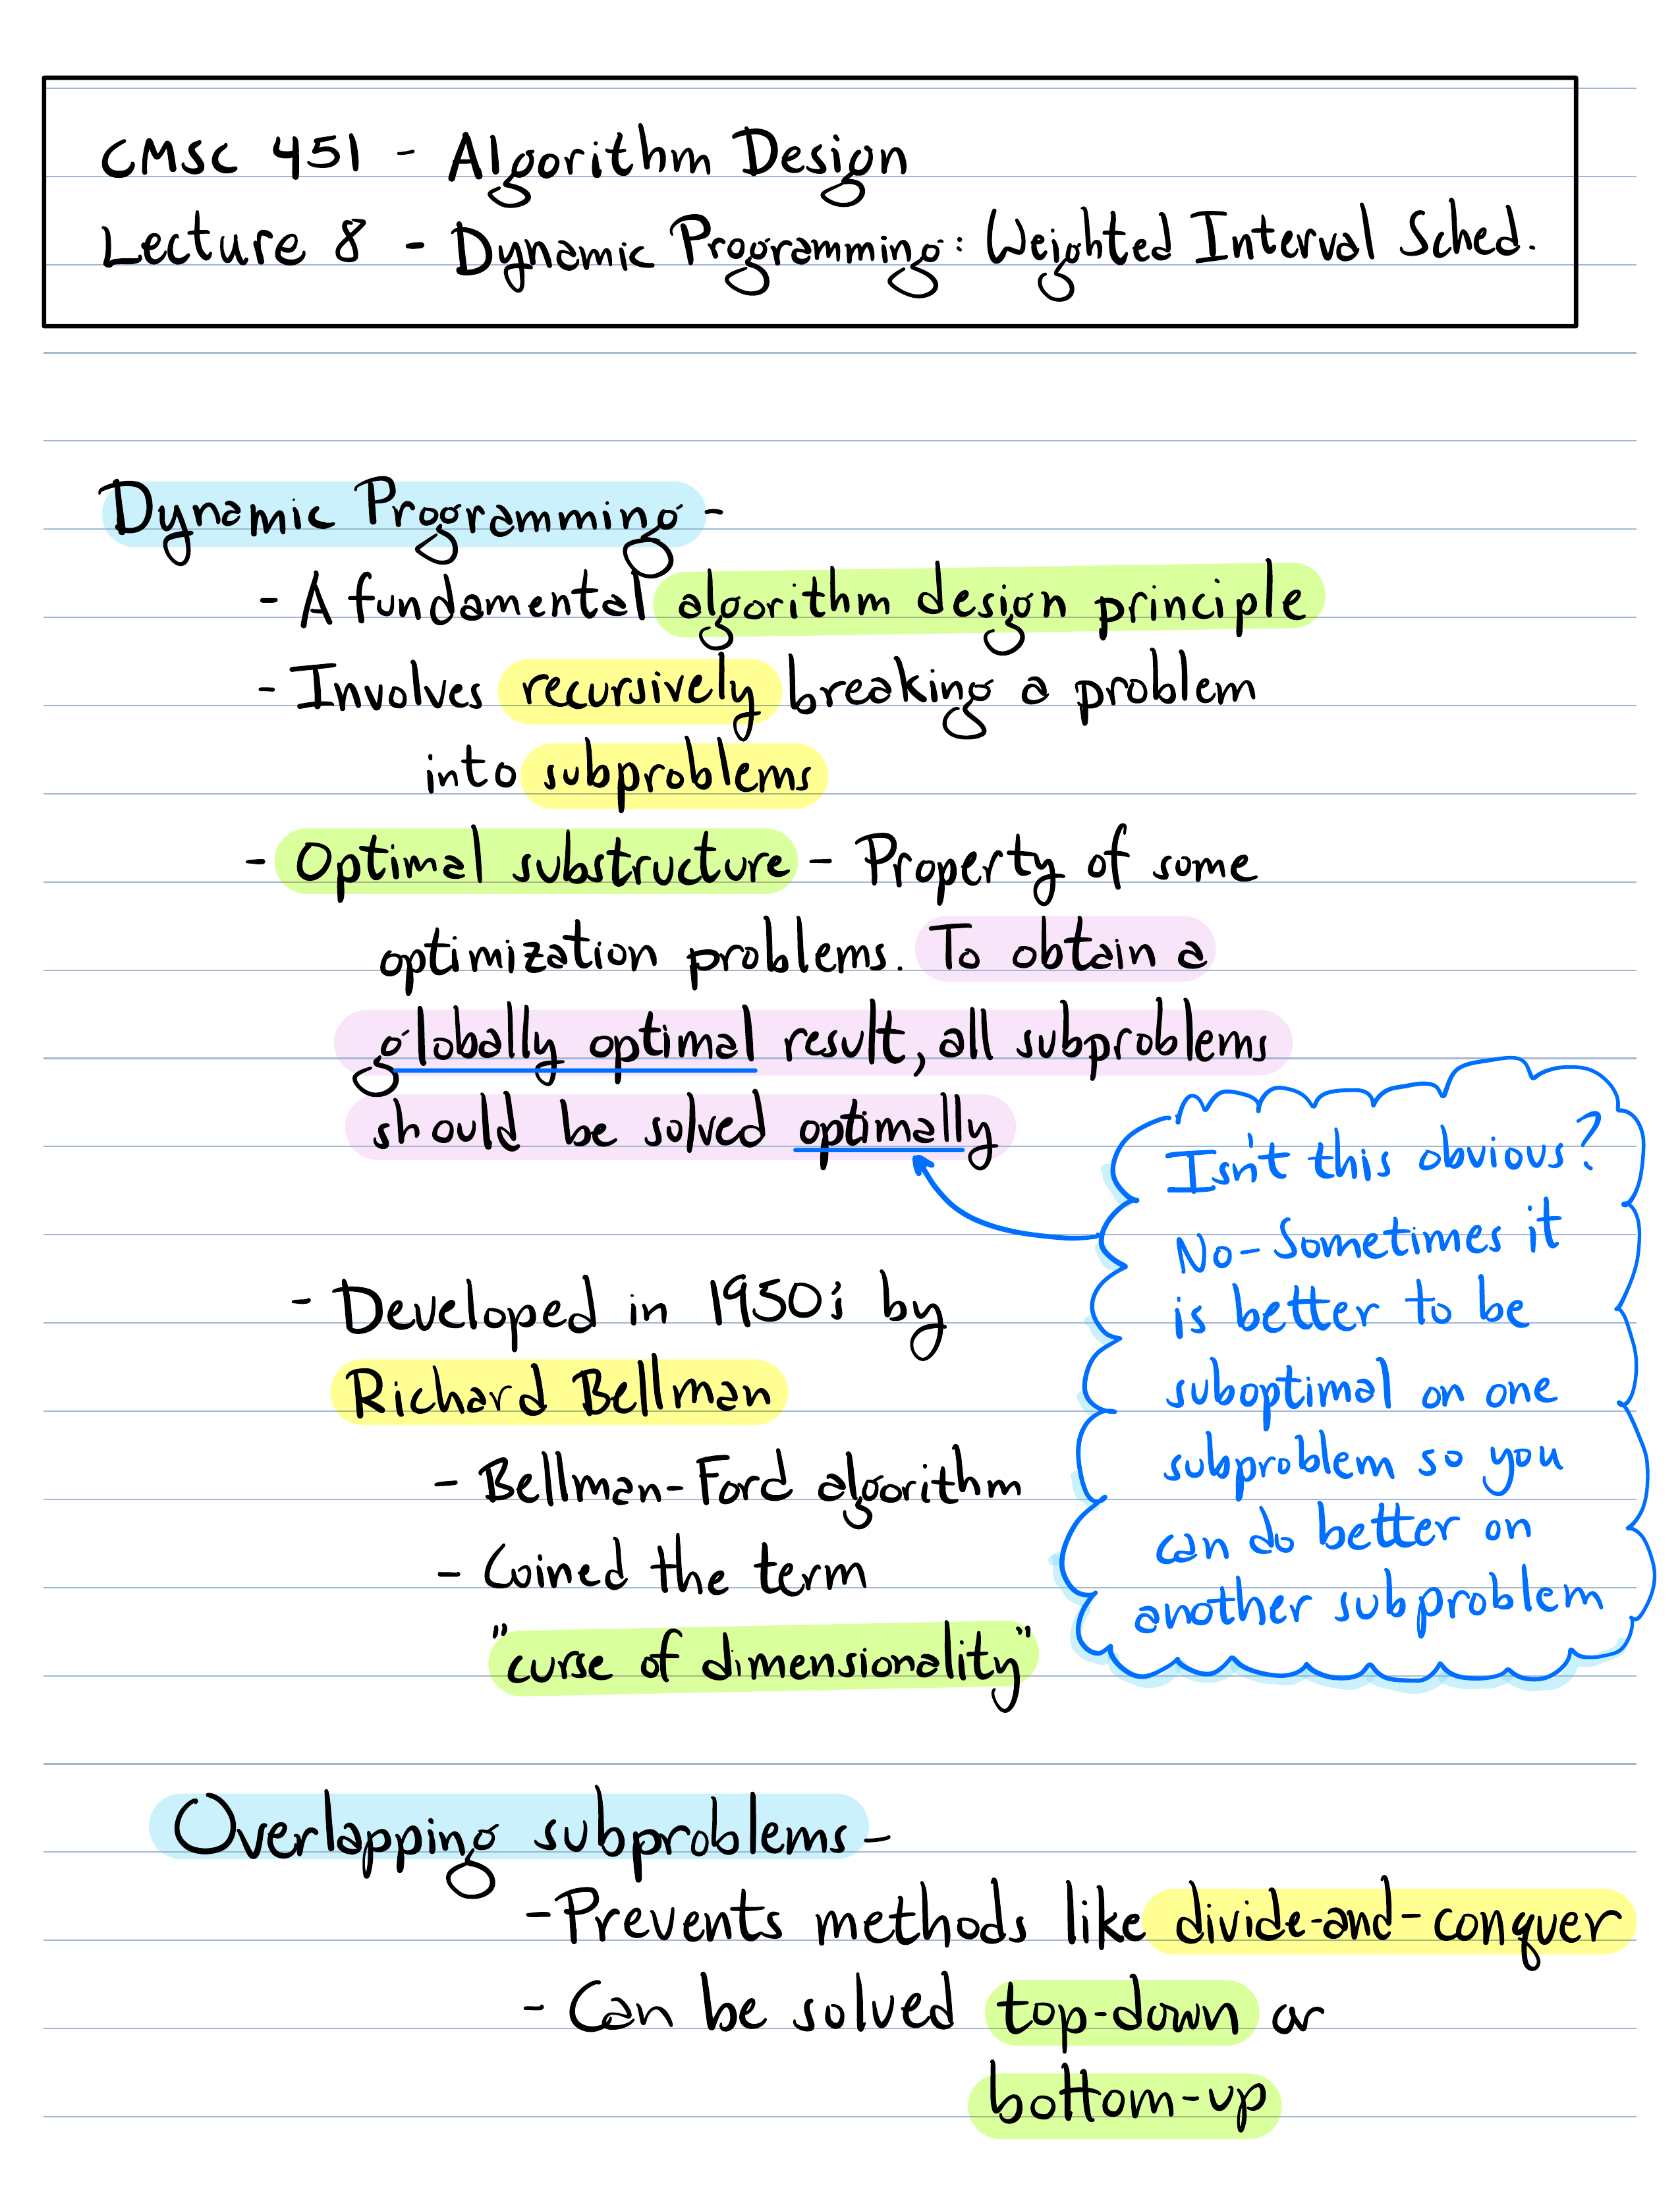 CMSC 451 - Algorithm Design
Lecture 8 - Dynamic Programming: Weighted Interval Sched.
Dynamic Programming -
- A fundamental algorithm design principle
- Involves recursively breaking a problem
into subproblems
- Optimal substructure - Property of some
optimization problems. To obtain a
globally optimal result, all subproblems
should be solved optimally
Isn't this obvious?
No - Sometimes it
is better to be
suboptimal on one
subproblem so you
can do better on
another subproblem
- Developed in 1950's by
Richard Bellman
- Bellman-Ford algorithm
- Coined the term
"curse of dimensionality"
Overlapping subproblems -
- Prevents methods like divide-and-conquer
- Can be solved top-down or
bottom-up